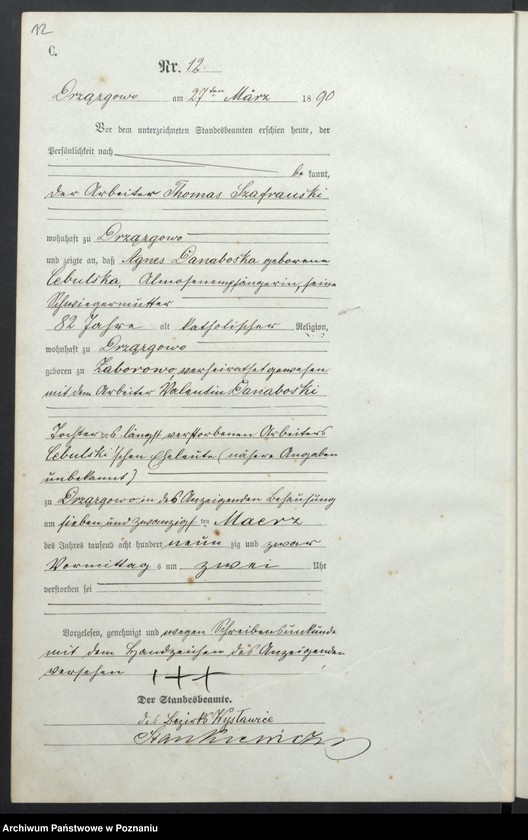 12
C.
Nr. 12.
Drzązgowo am 27ten März 1890
Vor dem unterzeichneten Standesbeamten erschien heute, der
Persönlichkeit nach
be kannt,
der Arbeiter Thomas Szafranski
wohnhaft zu Drzązgowo
und zeigte an, daß Agnes Danaboska geborene
Cebulska, Almosenempfängerin, seine
Schwiegermutter
82 Jahre alt katholischer Religion,
wohnhaft zu Drzązgowo
geboren zu Zaborowo, verheirathet gewesen
mit dem Arbeiter Valentin Danaboski
Tochter des längst verstorbenen Arbeiters
Cebulski'schen Eheleute (nähere Angaben
unbekannt)
zu Drzązgowo in des Anzeigenden Behausung
am sieben und zwanzigsten Maerz
des Jahres tausend acht hundert neun zig und zwar
Vormittag s um zwei Uhr
verstorben sei
Vorgelesen, genehmigt und wegen Schreibensunkunde
mit dem Handzeichen des Anzeigenden
versehen +++
Der Standesbeamte.
des Bezirks
Stankiewicz
Archiwum Państwowe w Poznaniu